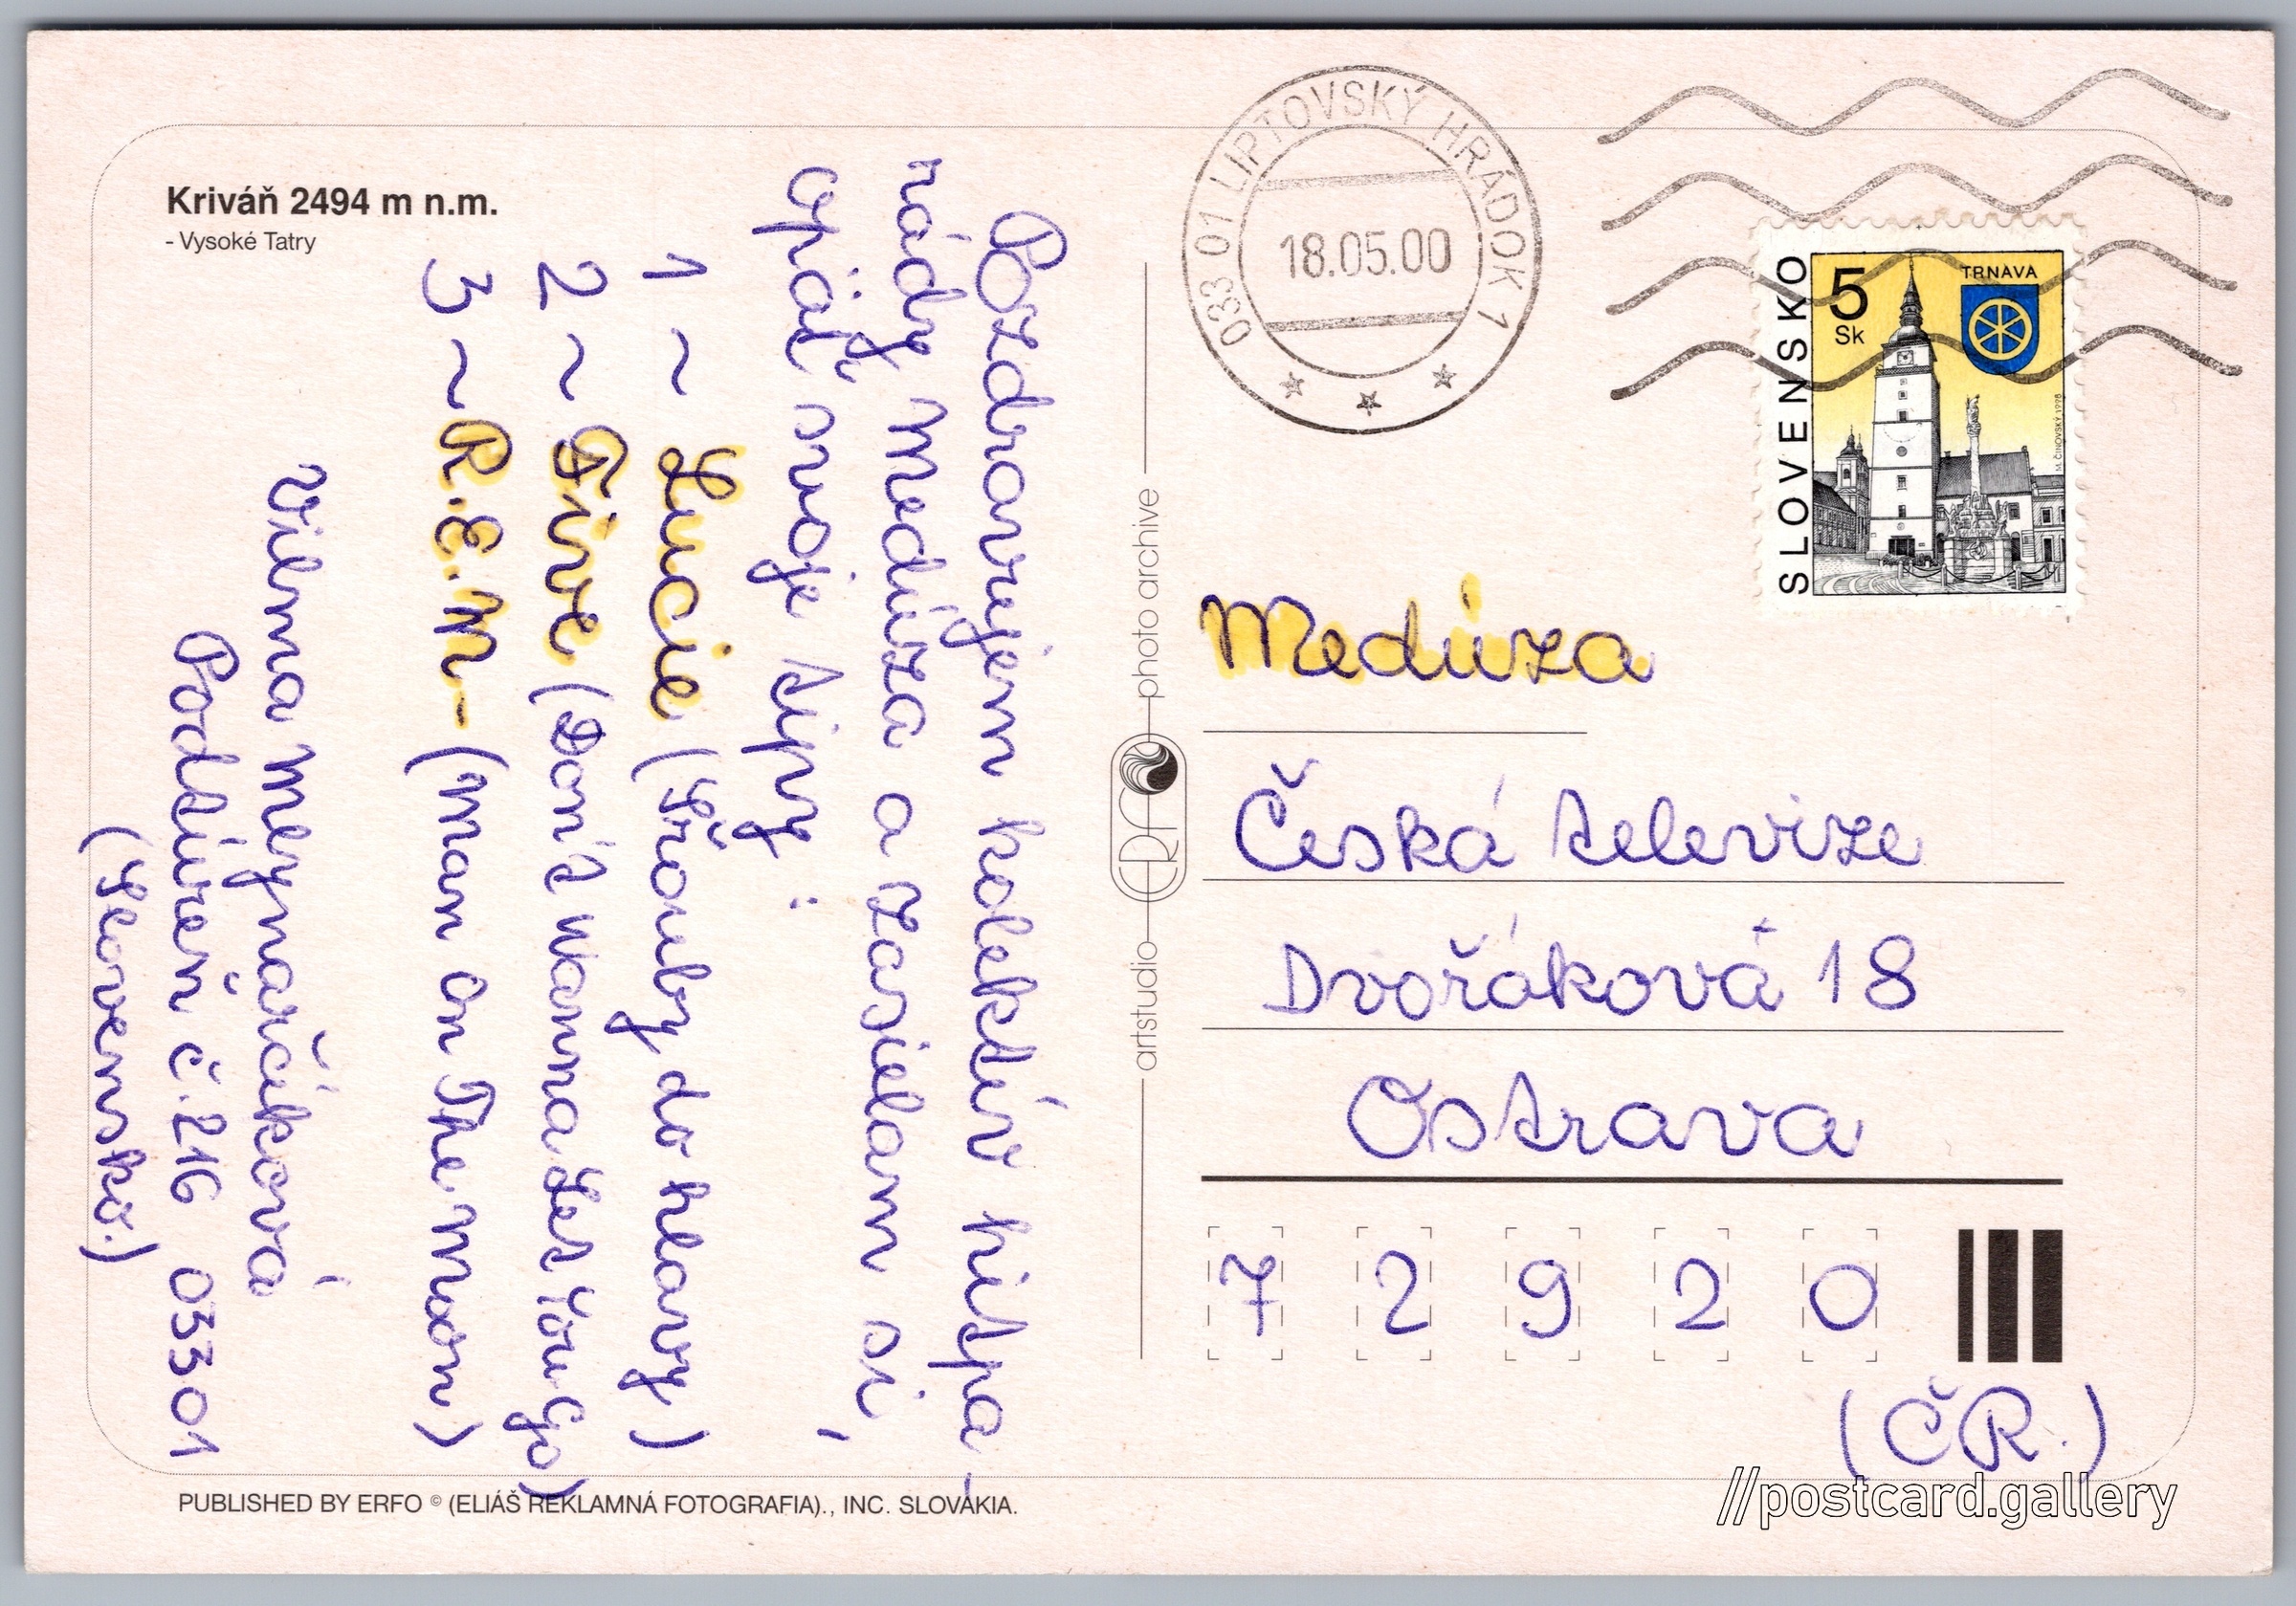 Kriváň 2494 m n.m.
- Vysoké Tatry
Pozdravujem kolektív hitpa-
rády Medúza a zasielam si,
opäť svoje tipy :
1 ~ Lucie (Šrouby do hlavy)
2 ~ Five (Don't Wanna Let You Go)
3 ~ R.E.M - (Man on The Moon)
Vilma Mejnarčíková
Podtureň č. 216 03301
(Slovensko.)
PUBLISHED BY ERFO © (ELIÁŠ REKLAMNÁ FOTOGRAFIA)., INC. SLOVAKIA.
artstudio ERFO photo archive
033 01 LIPTOVSKÝ HRÁDOK 1
18.05.00
SLOVENSKO
5
Sk
TRNAVA
M. ČINOVSKÝ 1998
Medúza
Česká televize
Dvořáková 18
Ostrava
7 2 9 2 0
(ČR.)
//postcard.gallery